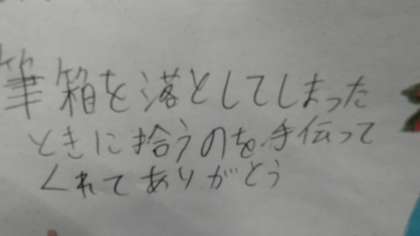 筆箱を落としてしまった
ときに拾うのを手伝って
くれてありがとう